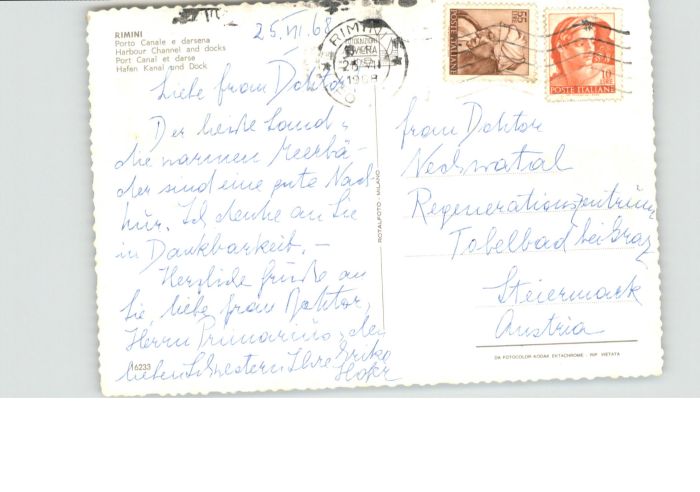 RIMINI
Porto Canale e darsena
Harbour Channel and docks
Port Canal et darse
Hafen Kanal und Dock
25. VII. 68
RIMINI
RIVIERA
1968
POSTE ITALIANE
55 LIRE
10 LIRE
POSTE ITALIANE
Liebe Frau Doktor
Der heiße Sand u
die warmen Meerbä-
der sind eine gute Nach
kur. Ich denke an Sie
in Dankbarkeit. –
Herzliche Grüße an
Sie, liebe Frau Doktor,
Herrn Primarius, den
lieben Schwestern Ihre Erika
Hofer
16233
ROTALFOTO - MILANO
Frau Doktor
Nechwatal
Regenerationszentrum
Tobelbad bei Graz
Steiermark
Austria
DA FOTOCOLOR KODAK EKTACHROME - RIP. VIETATA